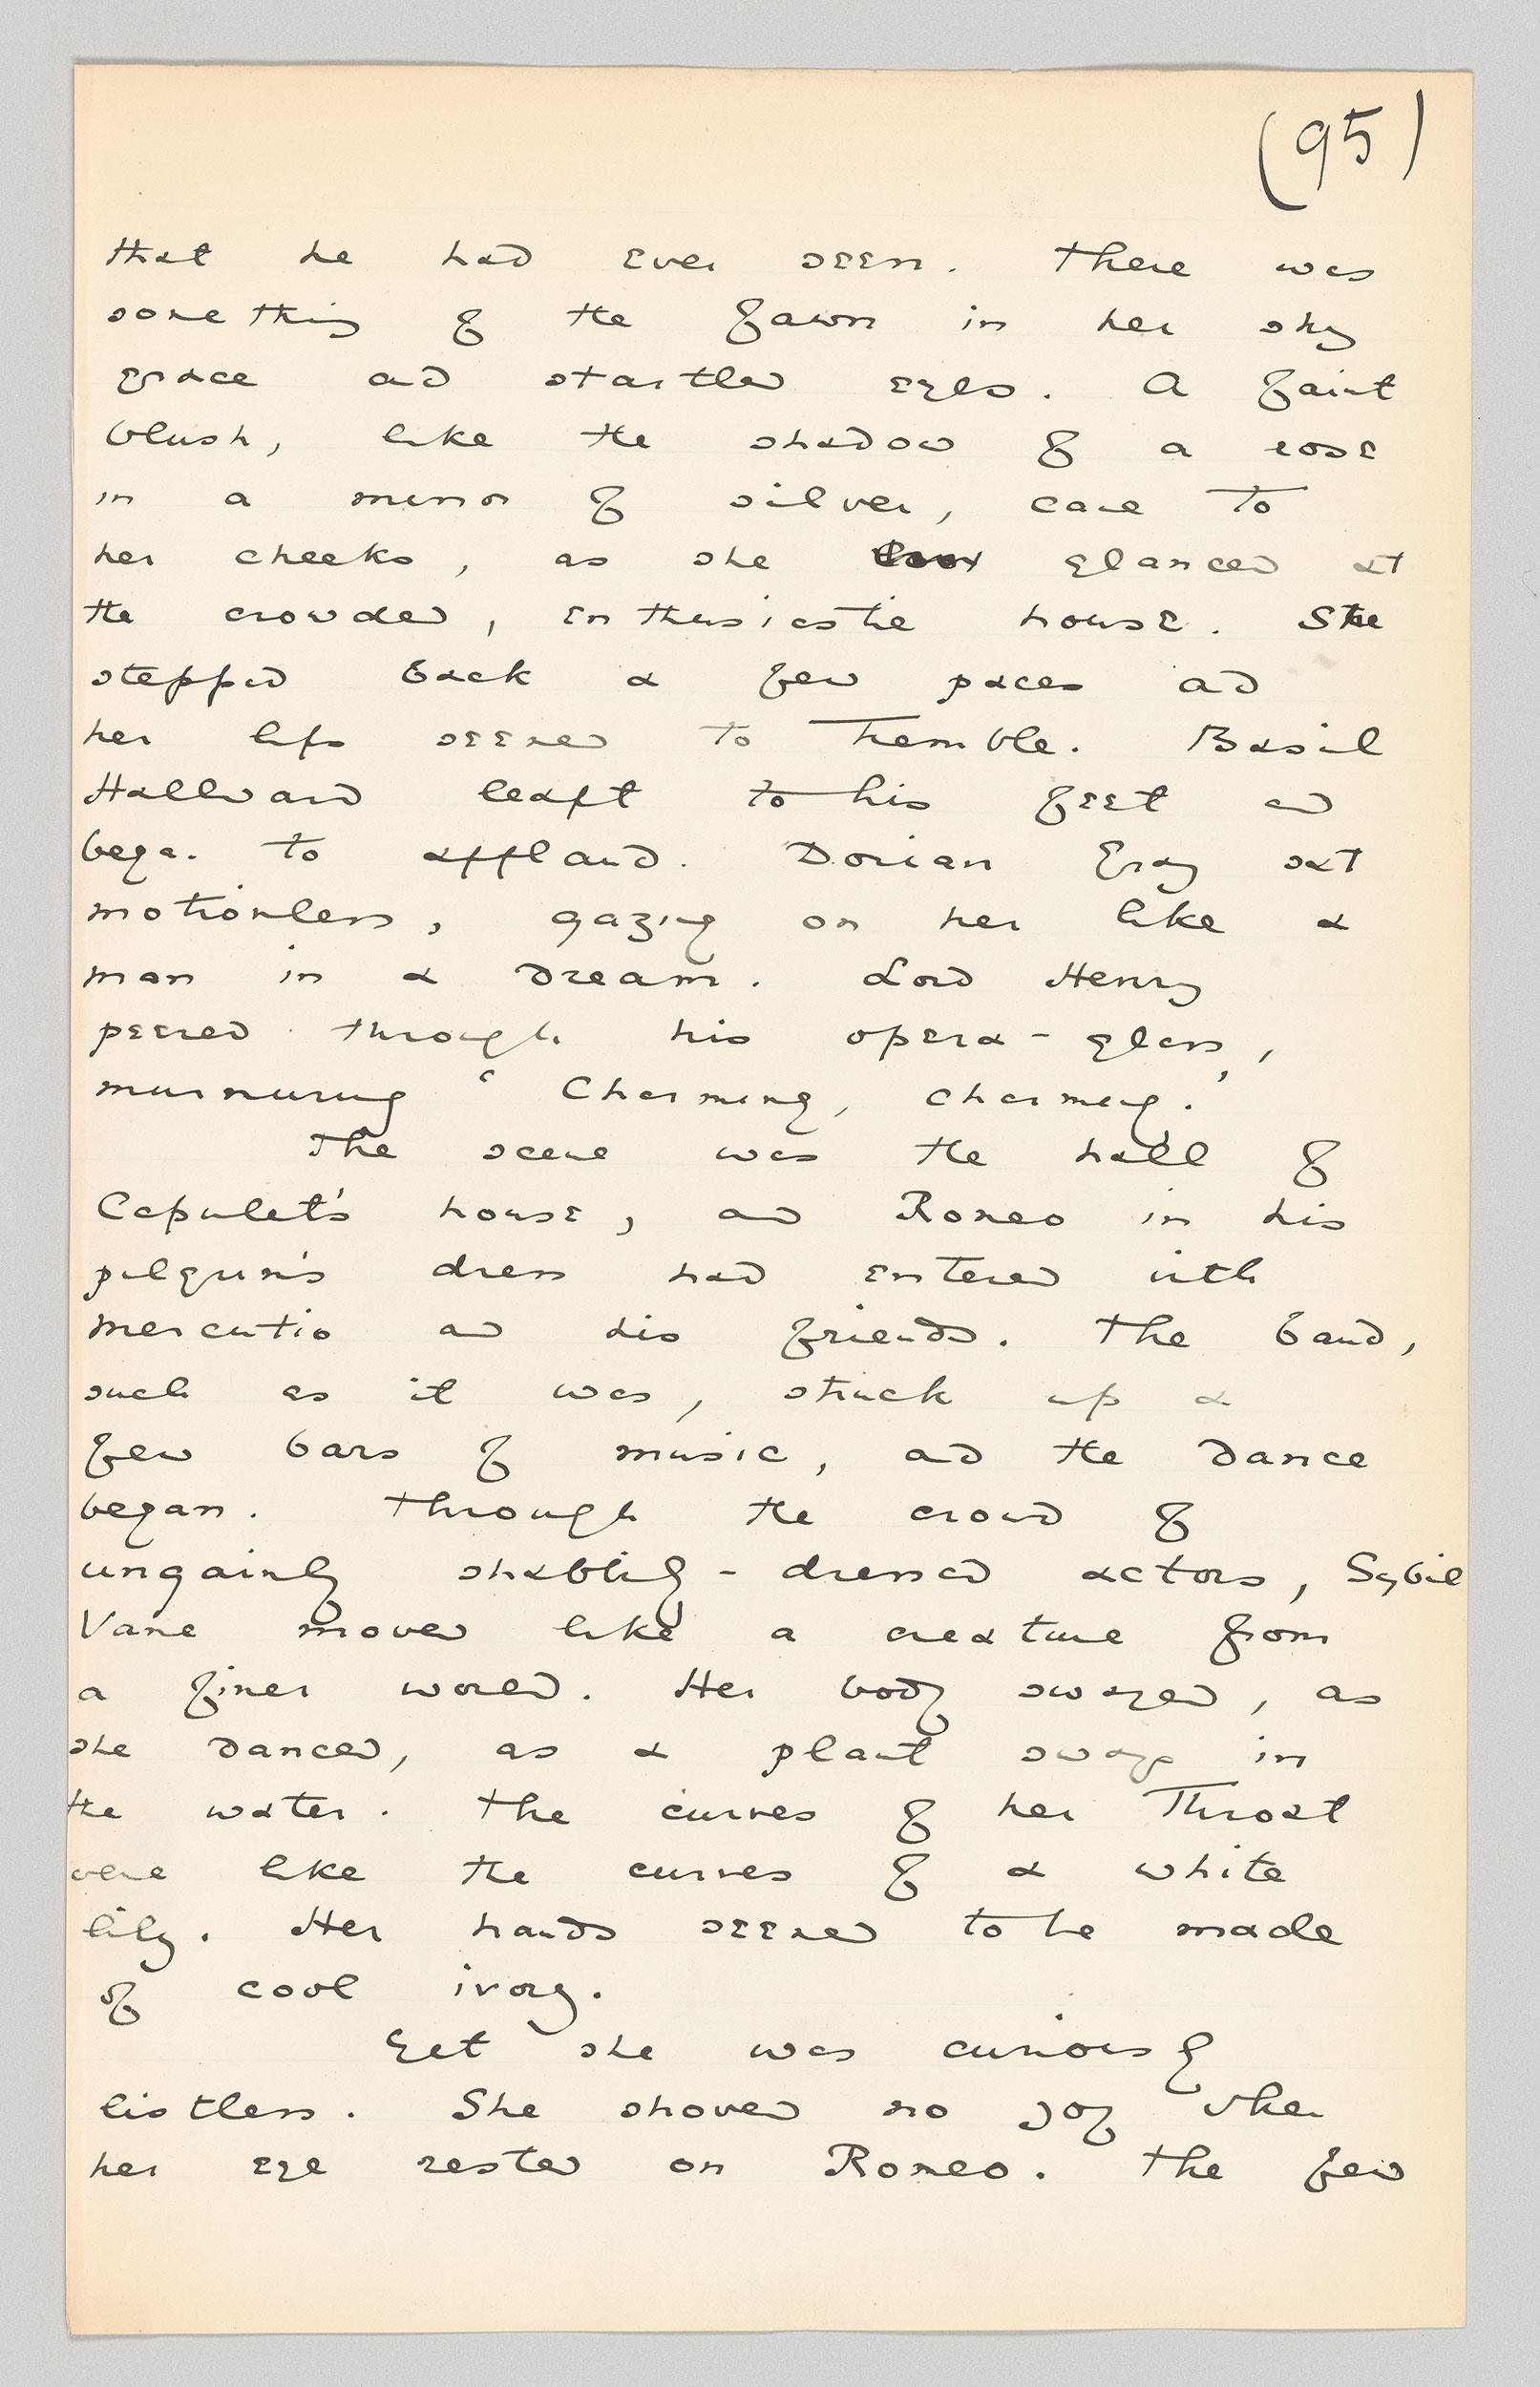 (95)
that he had ever seen. There was
something of the fawn in her shy
grace and startled eyes. A faint
blush, like the shadow of a rose
in a mirror of silver, came to
her cheeks, as she glanced at
the crowded, enthusiastic house. She
stepped back a few paces and
her lips seemed to tremble. Basil
Hallward leapt to his feet and
began to applaud. Dorian Gray sat
motionless, gazing on her like a
man in a dream. Lord Henry
peered through his opera-glass,
murmuring 'Charming, charming.'
The scene was the hall of
Capulet's house, and Romeo in his
pilgrim's dress had entered with
Mercutio and his friends. The band,
such as it was, struck up a
few bars of music, and the dance
began. Through the crowd of
ungainly shabbily-dressed actors, Sybil
Vane moved like a creature from
a finer world. Her body swayed, as
she danced, as a plant sways in
the water. The curves of her throat
were like the curves of a white
lily. Her hands seemed to be made
of cool ivory.
Yet she was curiously
listless. She showed no joy when
her eye rested on Romeo. The few